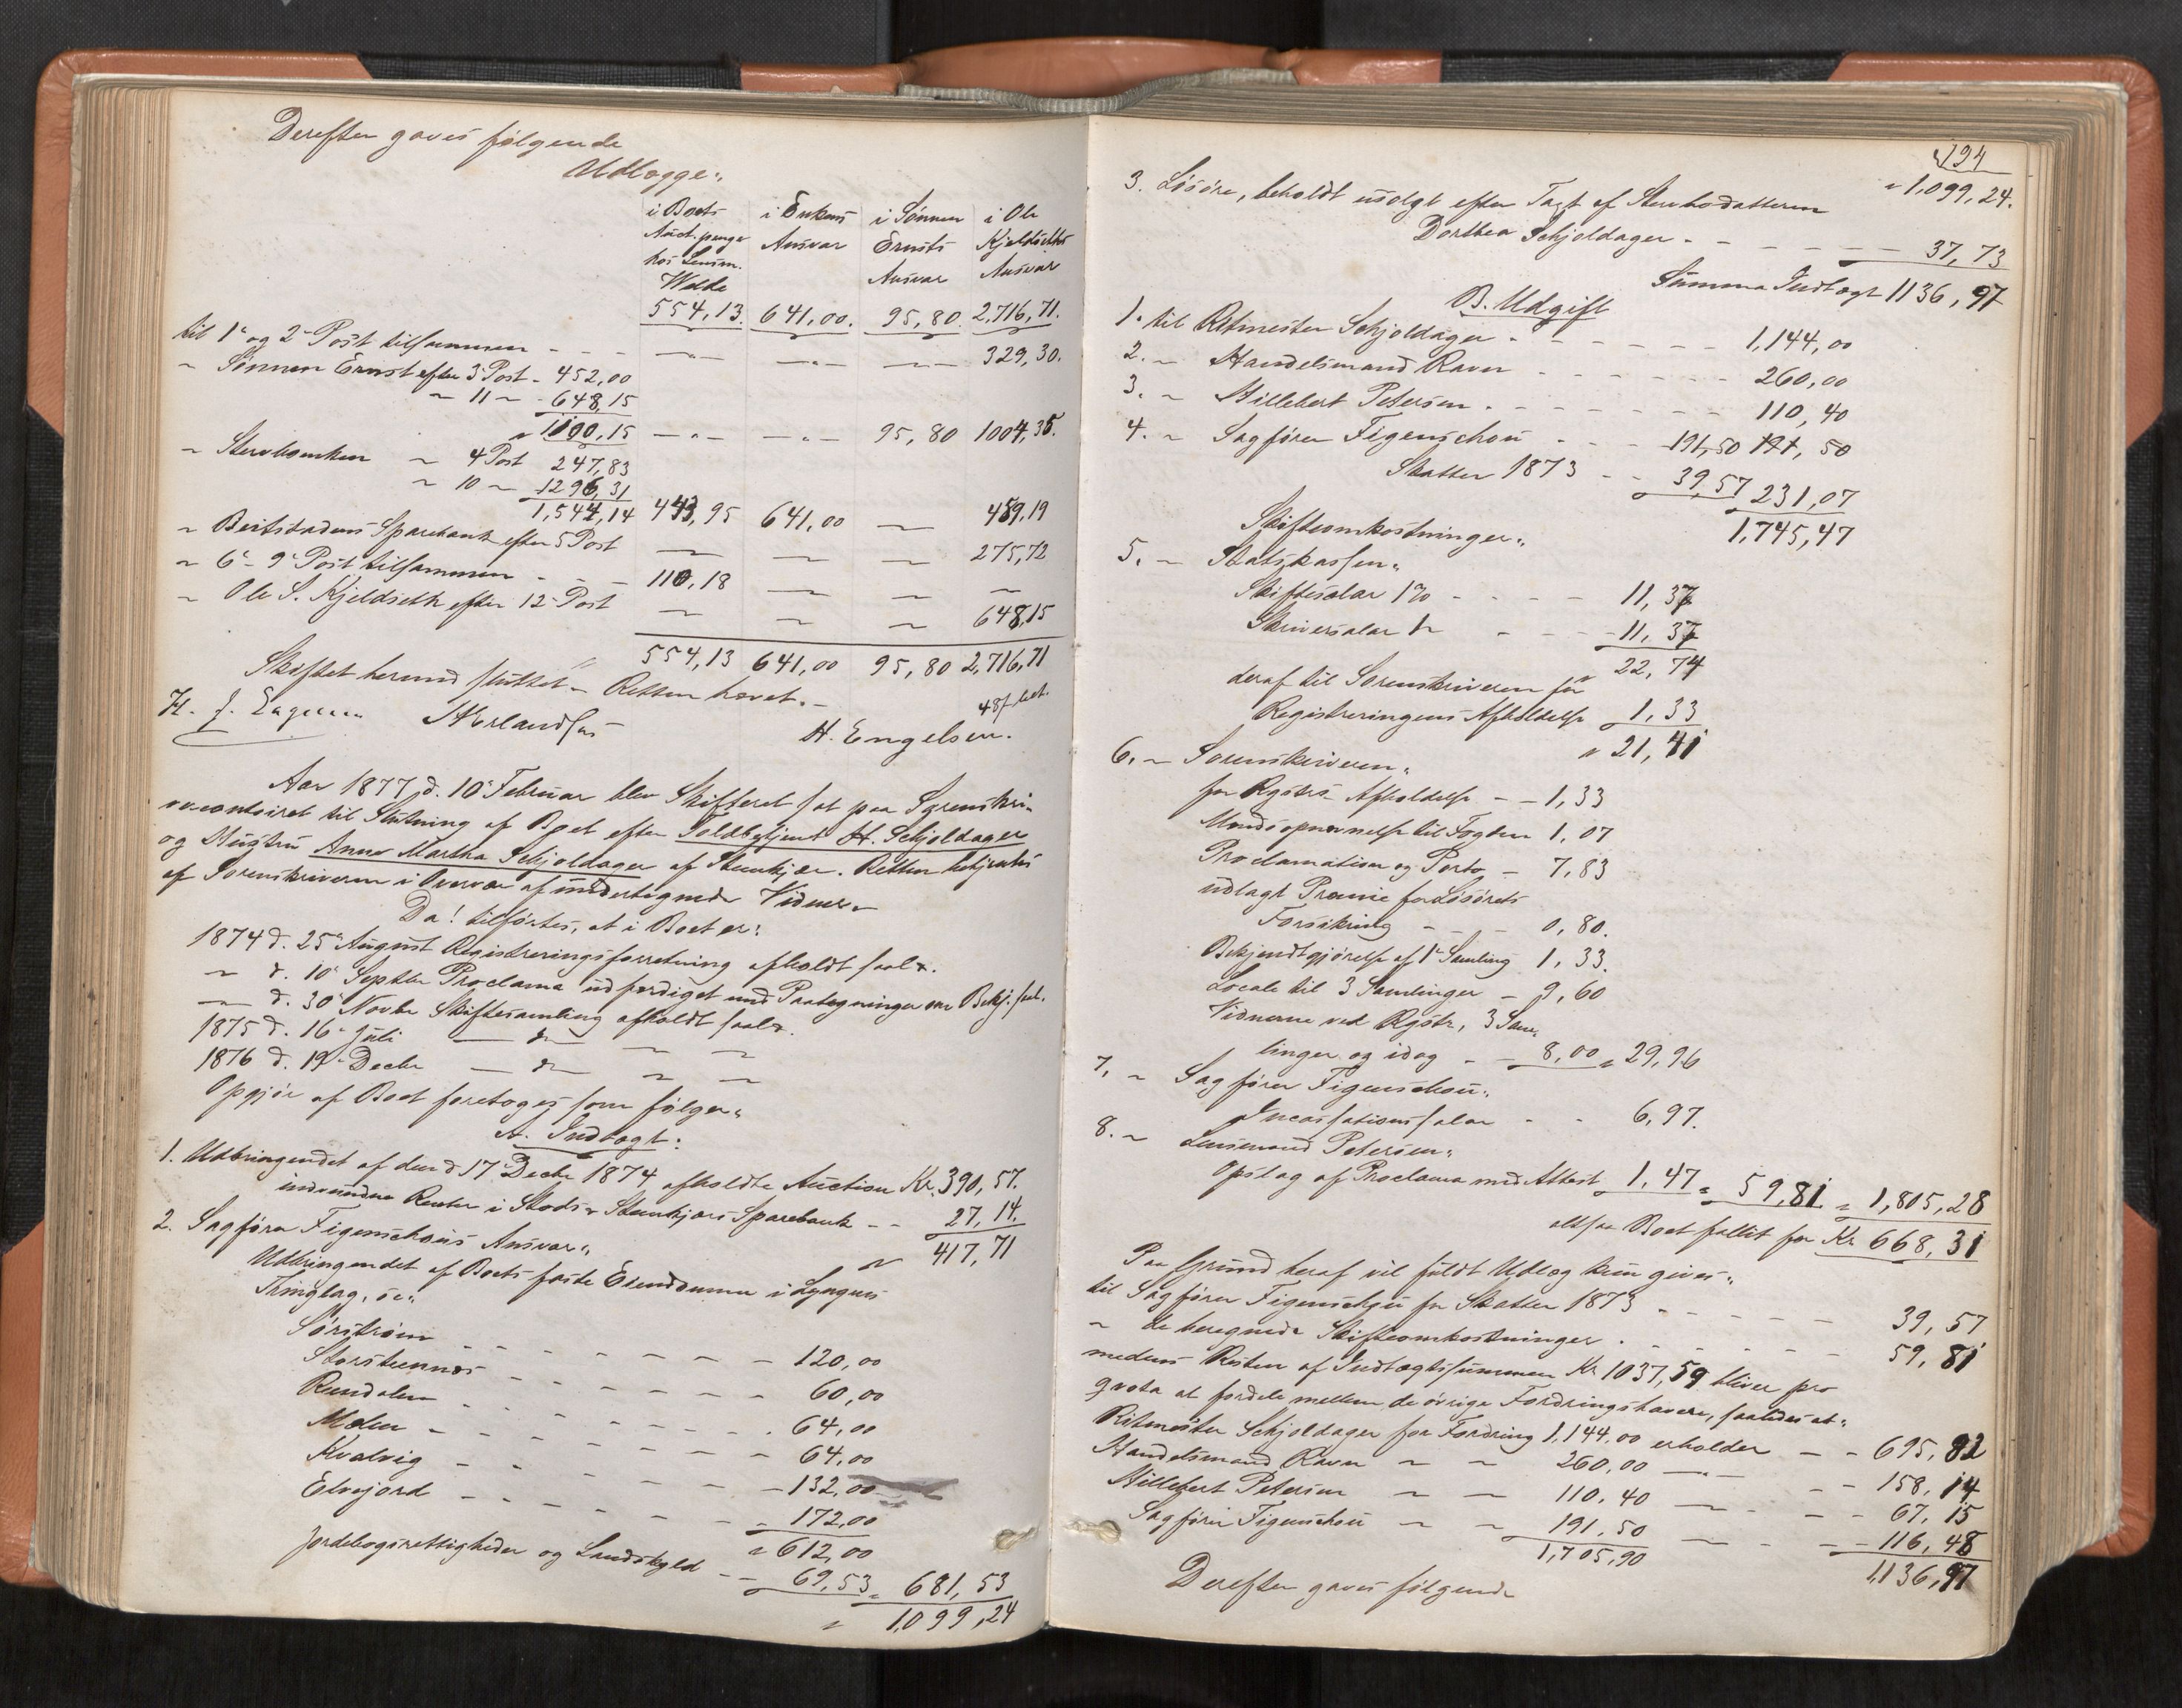 Derefter gaves følgende
Udlægge:
i Boets Auct. penge hos Lensm. Welde | i Enkens Ansvar | i Sønnen Ernsts Ansvar | i Ole Kjeldseths Ansvar
554,13. 641,00. 95,80. 2,716,71.
til 1e og 2e Post tilsammen - - - — — — 329,30.
" Sønnen Ernst efter 3e Post - 452,00
" 11 " - 648,15
" 1100,15 — — 95,80 1004,35.
" Stervboenken " 4 Post 247,83
" 10 " 1296,31
1,544,14 443,95 641,00 — 459,19
" Beitstadens Sparebank efter 5 Post — — — 275,72
" 6e - 9e Post tilsammen - - - 110,18 — — —
" Ole S. Kjeldseth efter 12e Post — — — 648,15
554,13 641,00 95,80 2,716,71
Skiftet hermed sluttet. Retten hævet. -
48f bet.
H. J. Erlandsen H. Engelsen.
Aar 1877 d. 10e Februar blev Skifteret sat paa Sorenskri-
vercontoiret til Slutning af Boet efter Toldbetjent H. Schjoldager
og Hustru Anne Martha Schjoldager af Stenkjær. Retten betjentes
af Sorenskriveren i Overvær af undertegnede Vidner.
Da! tilførtes, at i Boet er:
1874 d. 25e August Registreringsforretning afholdt
" d. 10e Septbr Proclama udfærdiget med Paategninger om Bekj.
" d. 30e Novbr Skiftesamling afholdt
1875 d. 16e Juli — do — " "
1876 d. 19e Decbr — do — " "
Opgjør af Boet foretoges som følger:
A. Indtægt:
1. Udbringendet af den d 17e Decbr 1874 afholdte Auction Kr. 390,57.
indvundne Renter i Stods & Stenkjærs Sparebank - - 27,14.
" 417,71
2. Sagfører Figenschous Ansvar:
Udbringendet af Boets faste Eiendomme i Lyngens
Thinglag, o:
Sørstrøm - - - - - - - 120,00
Storsteennæs - - - - - - 60,00
Rundalen - - - - - - 64,00
Molen - - - - - - 64,00
Kvalvig - - - - - - 132,00
Elvejord - - - - - - 172,00
" 612,00
Jordebogsrettigheder og Landskyld - - 69,53 " 681,53
" 1,099,24
424
" 1,099,24.
3. Løsøre, beholdt usolgt efter Taxt af Stervbodatteren
Dorthea Schjoldager - - - - - - 37,73
Summa Indtægt 1136,97
B. Udgift
1. til Ritmester Schjoldager - - - - - - 1,144,00
2. " Handelsmand Raver - - - - - - 260,00
3. " Hillebert Petersen - - - - - - 110,40
4. " Sagfører Figenschou - - - 191,50 191,50
Skatter 1873 - - 39,57 231,07
1,745,47
Skifteomkostninger:
5. " Statskassen:
Skiftesalær 1% - - - - 11,37
Skriversalær 1" - - - - 11,37
" 22,74
deraf til Sorenskriveren for
Registreringens Afholdelse 1,33
" 21,41
6. " Sorenskriveren:
for Rgstrs Afholdelse - - 1,33
Mandsopnævnelse til Fogden 1,07
Proclamation og Porto - 7,83
udlagt Præmie for Løsørets
Forsikring - - - 0,80.
Bekjendtgjørelse af 1e Samling 1,33.
Locale til 3 Samlinger - 9,60
Vidnerne ved Rgstr, 3 Sam-
linger og idag - - 8,00 " 29,96
7. " Sagfører Figenschou:
Incassationssalær - - 6,97.
8. " Lensmand Petersen:
Opslag af Proclama med Attest 1,47 " 59,81 " 1,805,28
altsaa Boet fallit for Kr 668,31
Paa Grund heraf vil fuldt Udlæg kun gives:
til Sagfører Figenschou for Skatter 1873 - - - - - 39,57
" de beregnede Skifteomkostninger - - - - - 59,81
medens Resten af Indtægtssummen Kr 1037,59 bliver pro
qvota at fordele mellem de øvrige Fordringshavere, saaledes at:
Ritmester Schjoldager for Fordring 1,144,00 erholder - - 695,82
Handelsmand Raver " " 260,00 — " — - - 158,14
Hillebert Petersen " " 110,40 — " - - 67,15
Sagfører Figenschou " " 191,50 — " - - 116,48
1,705,90 1,136,97
Derefter gaves følgende